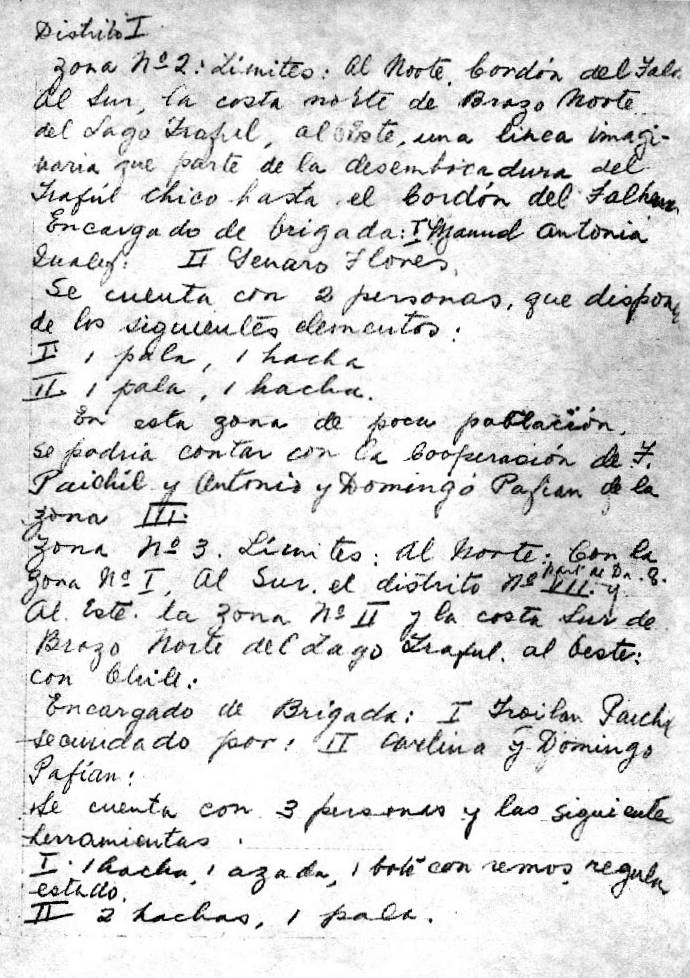 Distrito I
Zona Nº 2: Límites: Al Norte. Cordón del
Al Sur, la costa norte de Brazo Norte
del Lago Traful, al Oeste, una linea imagi-
naria que parte de la desembocadura del
Trafúl chico hasta el Cordón del
Encargado de brigada: I Manuel Antonia
II Genaro Flores.
Se cuenta con 2 personas, que dispon
de los siguientes elementos:
I 1 pala, 1 hacha
II 1 pala, 1 hacha.
En esta zona de poca población,
se podria contar con la Cooperación de F.
Paichil y Antonio y Domingo Pafian de la
zona III.
Zona Nº 3. Límites: Al Norte: Con la
zona Nº I, Al Sur. el distrito Nº VII. y
Al Este. la zona Nº II y la costa Sur de
Brazo Norte del Lago Traful. al Oeste:
con Chile:
Encargado de Brigada: I Troilan Paichi
secundado por: II Carlina y Domingo
Pafían:
Se cuenta con 3 personas y las siguiente
herramientas.
I. 1 hacha, 1 azada, 1 bote con remos regular
estado.
II 2 hachas, 1 pala.